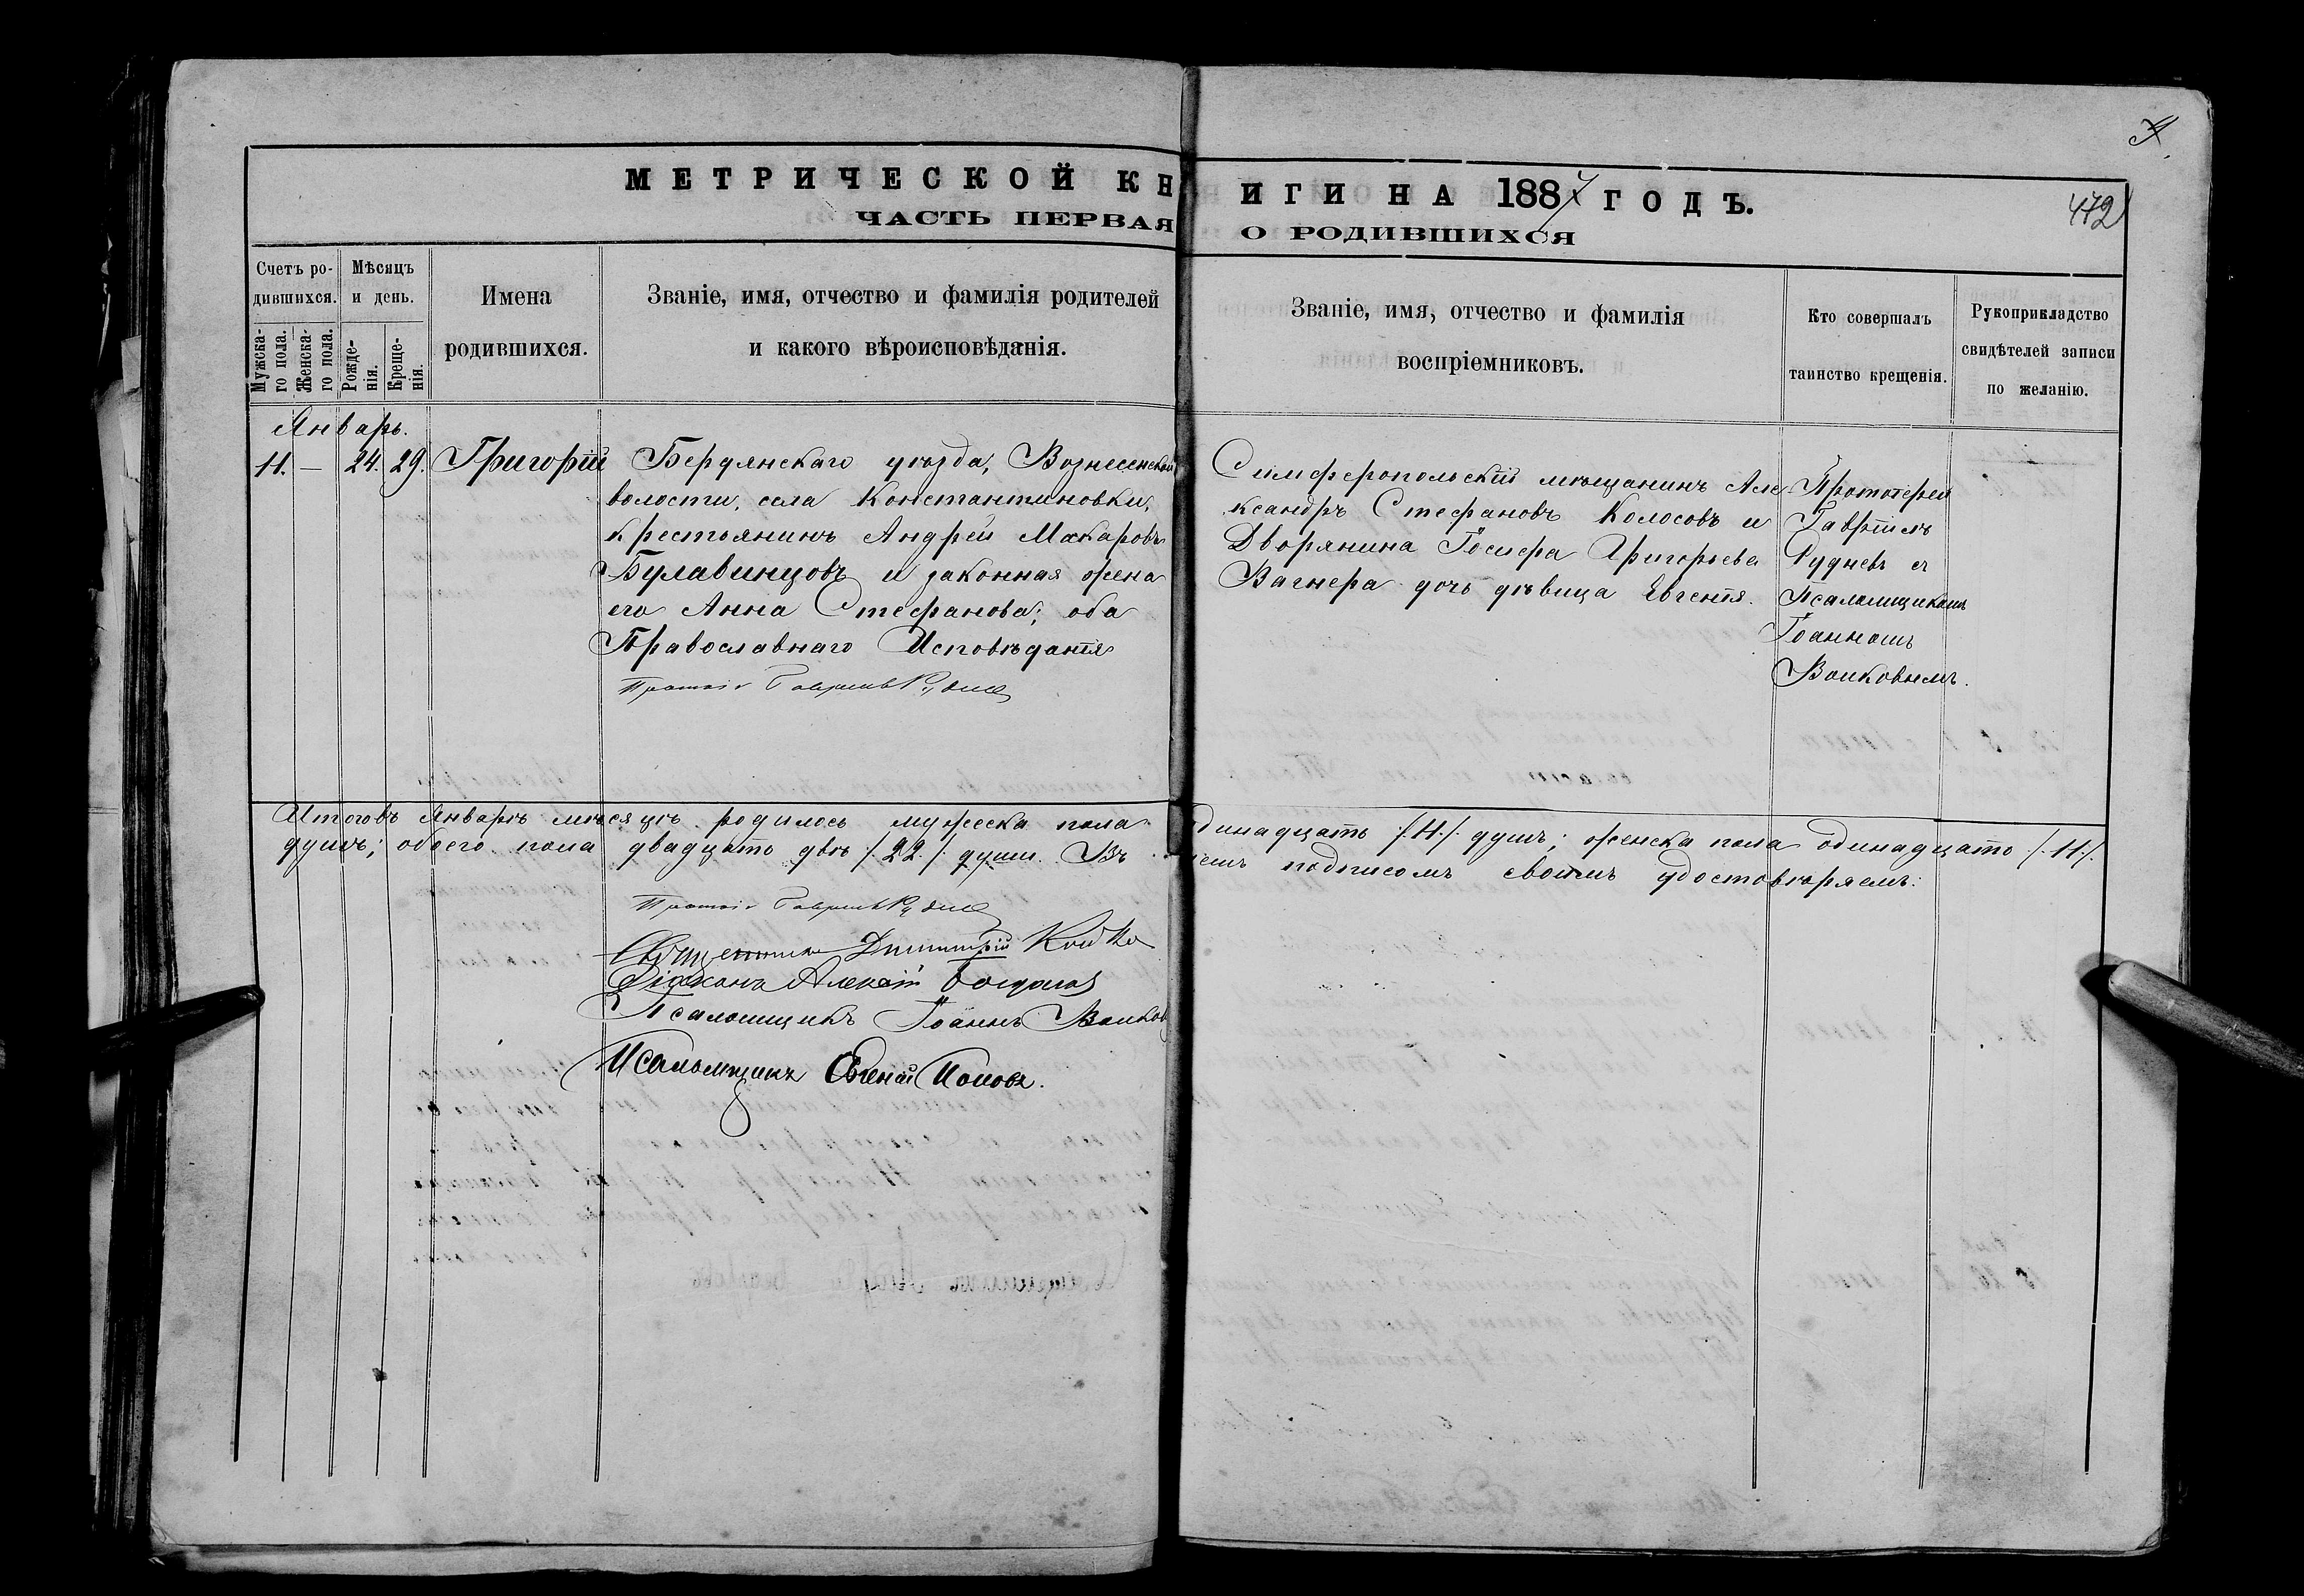 МЕТРИЧЕСКОЙ КНИГИ НА 1887 ГОДЪ.
ЧАСТЬ ПЕРВАЯ О РОДИВШИХСЯ
472
Счетъ ро-
дившихся.
Мужска-
го пола.
Женска-
го пола.
Мѣсяцъ
и день.
Рожде-
нія.
Креще-
нія.
Имена
родившихся.
Званіе, имя, отчество и фамилія родителей
и какого вѣроисповѣданія.
Званіе, имя, отчество и фамилія
воспріемниковъ.
Кто совершалъ
таинство крещенія.
Рукоприкладство
свидѣтелей записи
по желанію.
Январь.
11. — 24. 29. Григорій
Бердянскаго уѣзда, Вознесенской
волости, села Константиновки,
крестьянинъ Андрей Макаровъ
Булавинцовъ и законная жена
его Анна Стефанова; оба
Православнаго Исповѣданія
Гавріилъ Рудневъ
Симферопольскій мѣщанинъ Але
ксандръ Стефановъ Колосовъ и
Дворянина Іосифа Григорьева
Вагнера дочь дѣвица Евгенія.
Протоіерей
Гавріилъ
Рудневъ съ
Псаломщикомъ
Іоанномъ
Войковымъ.
Итого въ Январѣ мѣсяцѣ родилось мужеска пола одинадцать /.11./. душъ; женска пола одинадцать /.11./.
душъ; обоего пола двадцать двѣ /.22./. души. Въ чемъ подписомъ своимъ удостовѣряемъ:
Гавріилъ Рудневъ
Священникъ Димитрій Койко
Діаконъ Алексій
Псаломщикъ Іоаннъ Войков
Псаломщикъ Евгеній Поповъ.